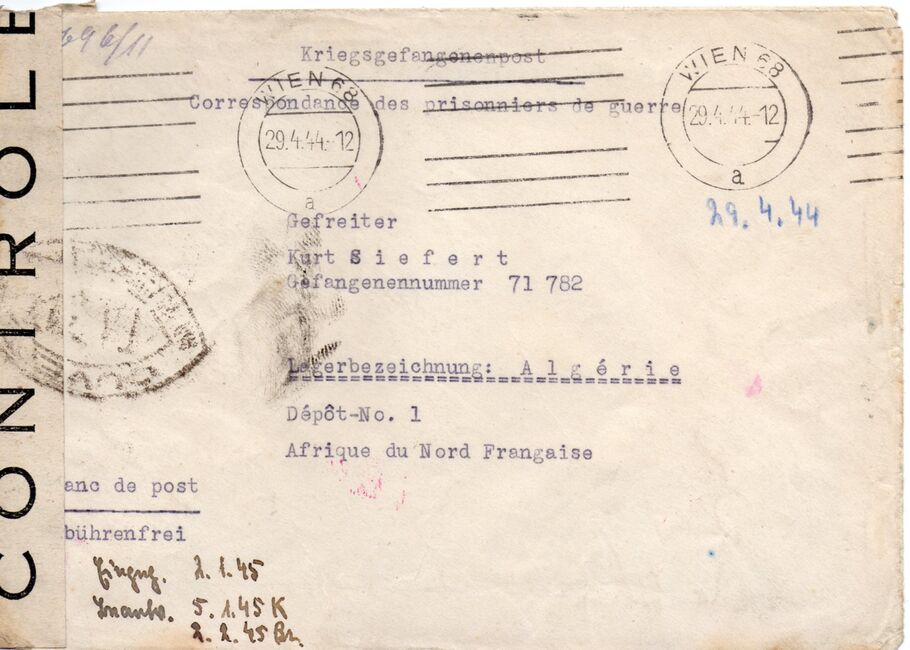 CONTROLE
696/11
Kriegsgefangenenpost
Correspondance des prisonniers de guerre
WIEN 68
29.4.44.-12
a
WIEN 68
29.4.44.-12
a
29.4.44
Gefreiter
Kurt S i e f e r t
Gefangenennummer 71 782
Lagerbezeichnung: A l g é r i e
Dépôt-No. 1
Afrique du Nord Frangaise
anc de post
bührenfrei
Eingng. 2.1.45
5.1.45 K
2.2.45 Br.